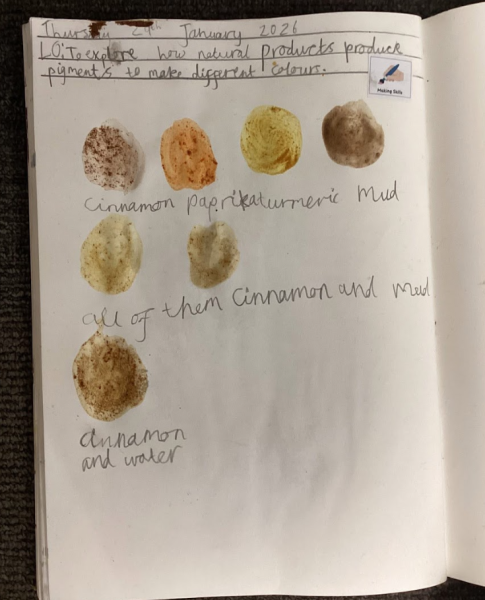 January 2026
LO: To explore how natural products produce
pigments to make different colours.
Making Skills
Cinnamon paprika turmeric Mud
all of them Cinnamon and mud
cinnamon
and water